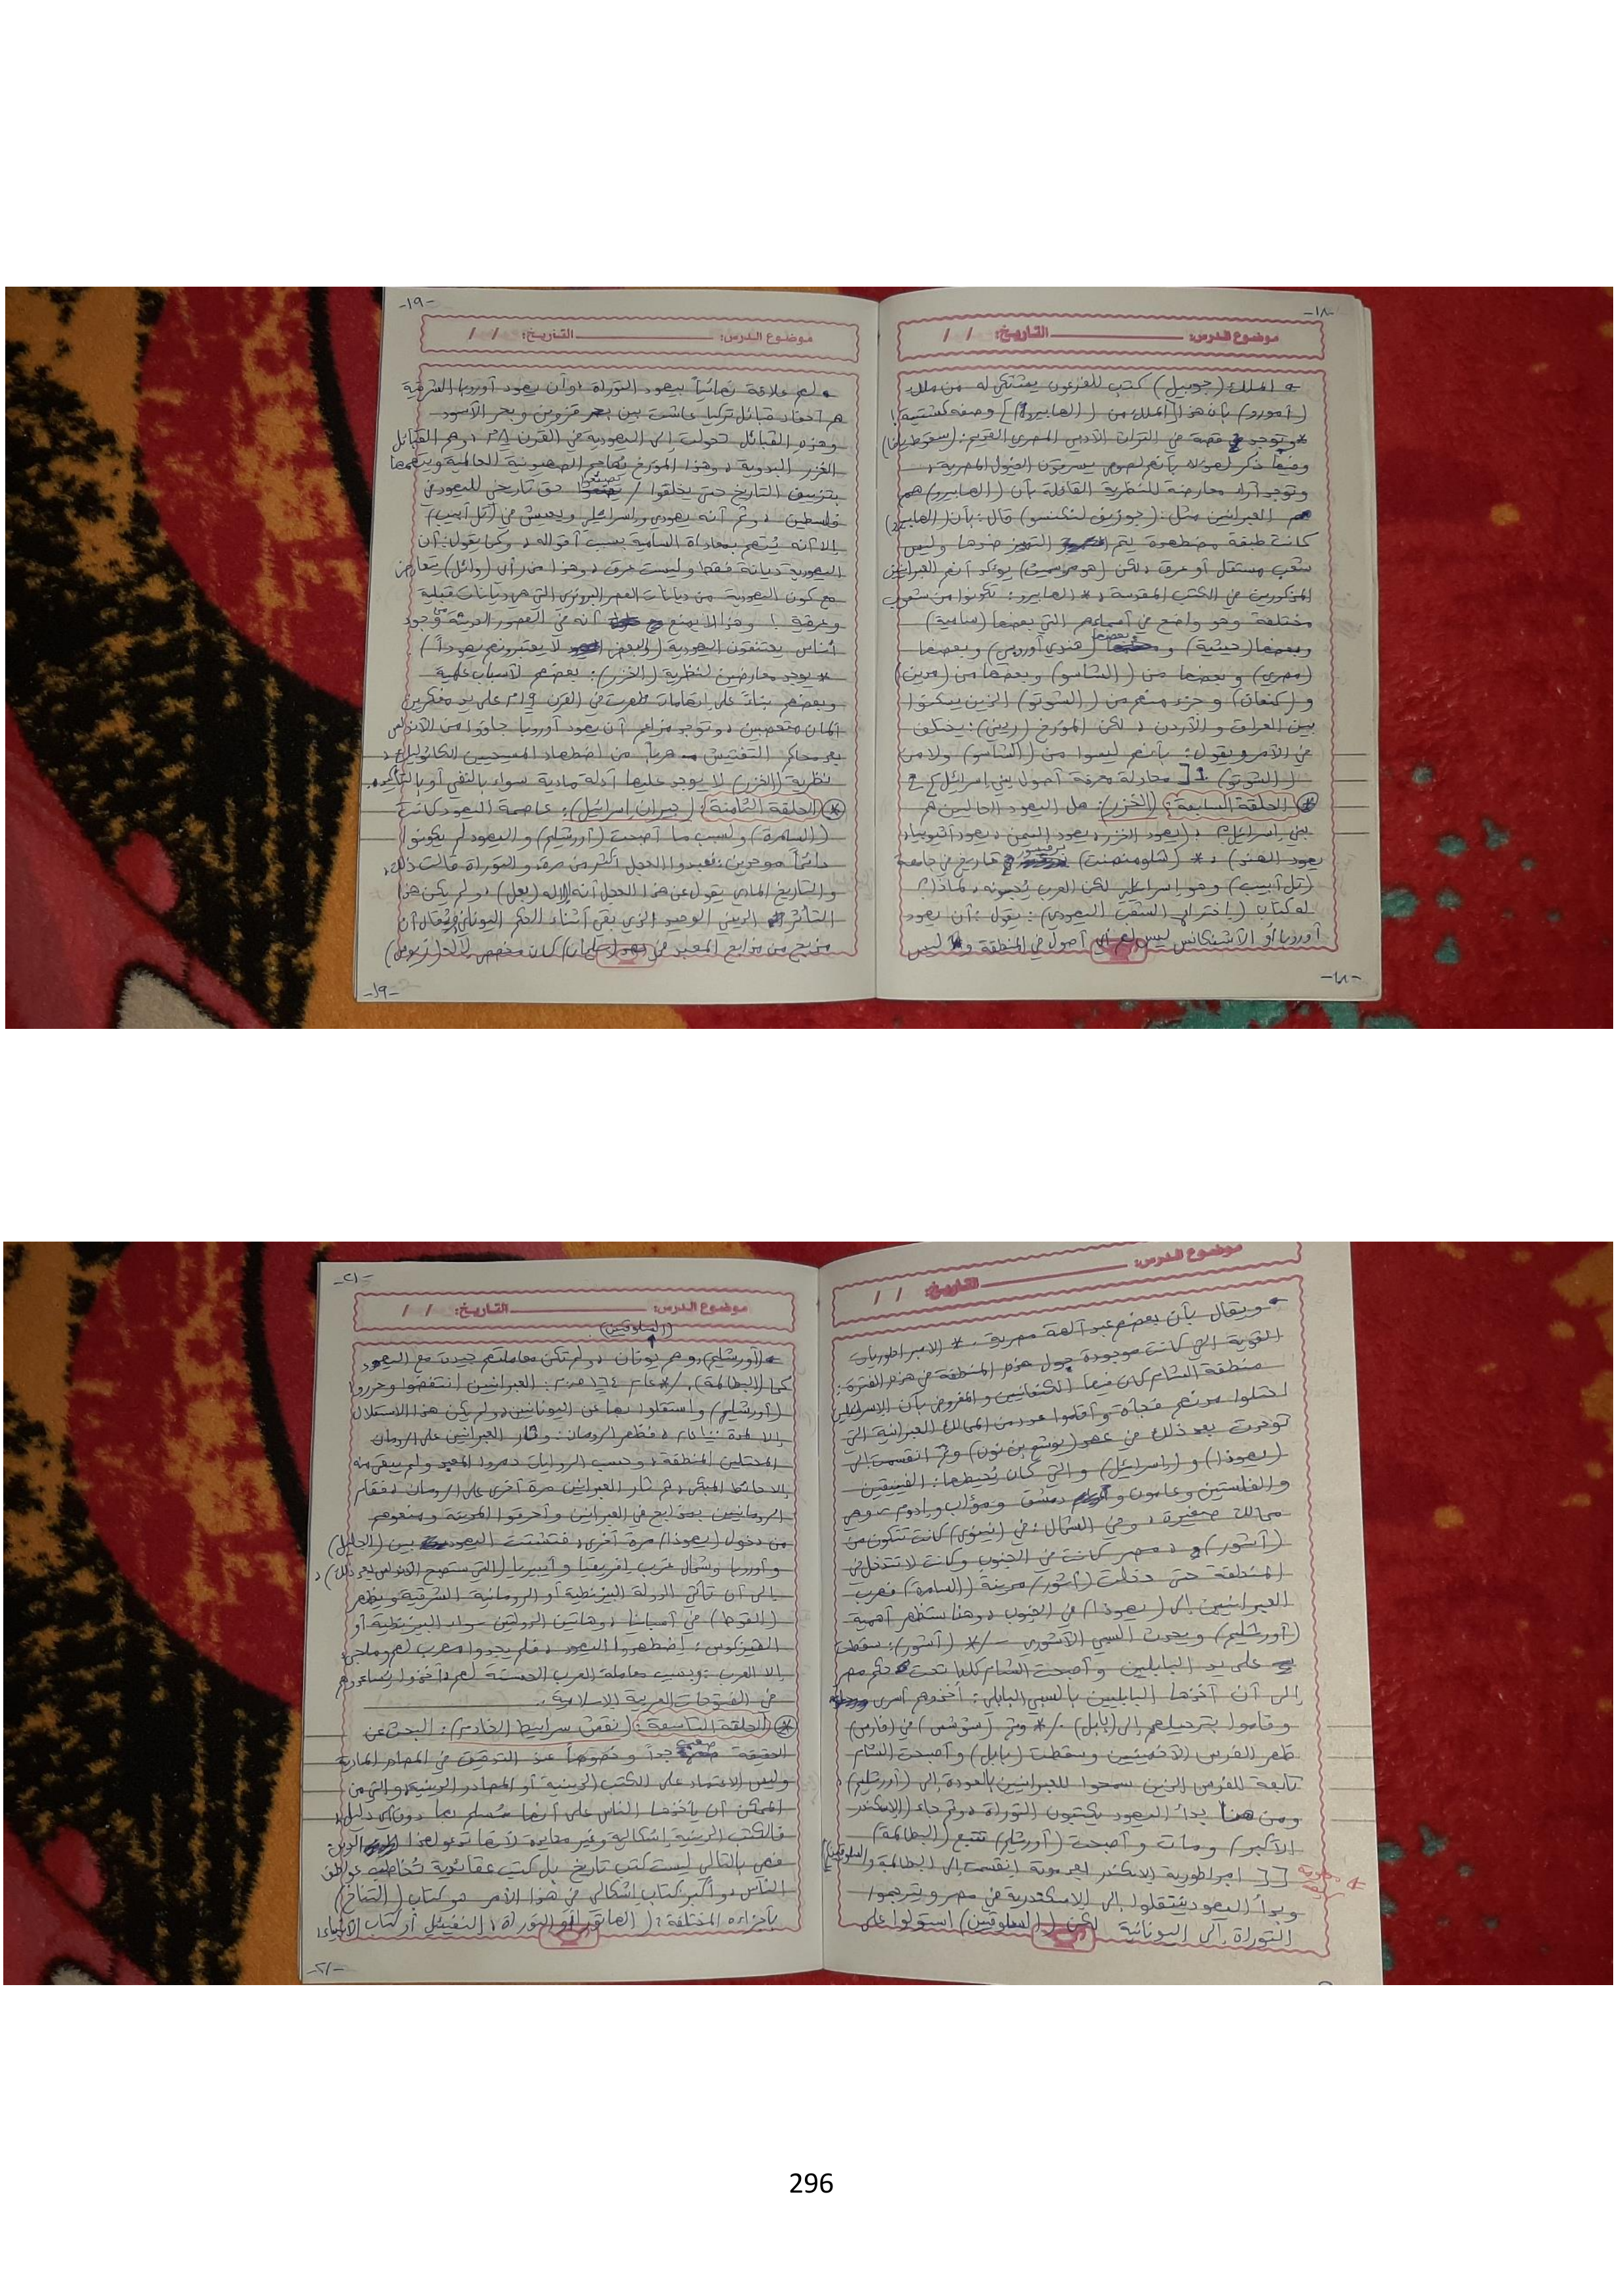 -١٨-
موضوع الدرس: التاريخ: / /
الملك (جوبيل) كتب للفرعون يشتكي له من ملك
(أمورو) بأن هذا [الملك من (الهابيرو)] وصفه كشتيمة!
* وتوجد قصة في التراث الأدبي المصري القديم:
وفيها ذكر لهؤلاء بأنهم لصوص يسرقون الخيول المصرية،
وتوجد آراء معارضة للنظرية القائلة بأن (الهابيرو) هم
العبرانيين مثل: (جوزيف لنكنسو) قال: بأن (الهابيرو)
كانت طبقة مضطهدة يتم التمييز ضدها وليس
شعب مستقل أو عرق، لكن يؤكد أنهم العبرانيين
المذكورين في الكتب المقدسة، * الهابيرو: تكونوا من شعوب
مختلفة وهو واضح في أسماءهم التي بعضها (سامية)
وبعضها (حيثية) وبعضها (هندي أوروبي) وبعضها
(مصري) وبعضها من (الشاسو) وبعضها من (مدين)
و(كنعان) وجزء منهم من (السوتو) الذين يسكنوا
بين العراق والأردن، لكن المؤرخ (ريني): يختلف
في الأمر ويقول: بأنهم ليسوا من (الشاسو) ولا من
(السوتو) محاولة معرفة أصول بني إسرائيل
* الحلقة السابعة: (الخزر): هل اليهود الحاليين هم
بني إسرائيل؟: (يهود الخزر، يهود اليمن، يهود أثيوبيا،
يهود الهند)، * (شلومو ساند) بروفيسور تاريخ في جامعة
(تل أبيب) وهو إسرائيلي لكن العرب يُحبونه، لماذا؟
له كتاب (إختراع الشعب اليهودي): يقول: أن يهود
أوروبا أو الأشكناس ليس لهم أي أصول في المنطقة وليس
-١٨-
-١٩-
موضوع الدرس: التاريخ: / /
لهم علاقة نهائياً بيهود التوراة، وأن يهود أوروبا الشرقية
هم أحفاد قبائل تركيا عاشت بين بحر قزوين وبحر الأسود
وهذه القبائل تحولت إلى اليهودية في القرن ٨م، وهم القبائل
الخزر البدوية، وهذا المؤرخ يُهاجم الصهيونية العالمية ويتهمها
بتزييف التاريخ حتى يخلقوا / حق تاريخي لليهود في
فلسطين، رغم أنه يهودي وإسرائيلي ويعيش في (تل أبيب)
إلا أنه يُتهم بمعاداة السامية بسبب أقواله، وكما يقول: أن
اليهودية ديانة فقط وليست عرق، وهذا من رأي (وائل) يتعارض
مع كون اليهودية من ديانات العصر البرونزي التي هي ديانات قبلية
وعرقية! وهذا لا يمنع أنه في العصور الحديثة وجود
أناس يعتنقون اليهودية (والبعض لا يعتبرونهم يهوداً)
* يوجد معارضين لنظرية (الخزر): بعضهم لأسباب علمية
وبعضهم بناءً على إتهامات ظهرت في القرن ١٩م على يد مفكرين
ألمان متعصبين، وتوجد مزاعم أن يهود أوروبا جاؤوا من الأندلس
بعد محاكم التفتيش هرباً من اضطهاد المسيحيين الكاثوليك،
نظرية (الخزر) لا يوجد عليها أدلة مادية سواء بالنفي أو بالتأكيد.
* الحلقة الثامنة: (جيران إسرائيل): عاصمة اليهود كانت
(السامرة) ولسبب ما أصبحت (أورشليم) واليهود لم يكونوا
دائماً موحدين، فعبدوا العجل أكثر من مرة، والتوراة قالت ذلك،
والتاريخ المادي يقول عن هذا العجل أنه الإله (بعل)، ولم يكن هذا
التأثر الديني الوحيد الذي بقي أثناء الحكم اليوناني فيُقال أن
مذبح من مذابح المعبد في كان مخصص لإله
-١٩-
موضوع الدرس: التاريخ: / /
ويقال بأن بعضهم عبد آلهة مصرية. * الامبراطوريات
القوية التي كانت موجودة حول هذه المنطقة في هذه الفترة:
منطقة الشام كان فيها الكنعانيين والمفروض بأن الإسرائيليين
احتلوا مدنهم فجأة وأقاموا عدد من الممالك العبرانية التي
توحدت بعد ذلك في عهد (يوشع بن نون) وثم انقسمت إلى
(يهوذا) و(إسرائيل) والتي كان يُحيطها: الفينيقين
والفلستين وعامون و دمشق ومؤاب وادوم، وهي
ممالك صغيرة، وفي الشمال: في (نينوى) كانت تتكون من
(آشور)، مصر كانت في الجنوب وكانت لا تتدخل في
المنطقة حتى دخلت (آشور) مدينة (السامرة) فهرب
العبرانيين إلى (يهوذا) في الجنوب، وهنا ستظهر أهمية
(أورشليم) ويحدث السبي الآشوري - /* (آشور): سقطت
على يد البابلين وأصبحت الشام كلها تحت حكم مصر
إلى أن أخذها البابليين بالسبي البابلي: أخذوهم أسرى
وقاموا بترحيلهم إلى (بابل). /* وثم (سوسس) في (فارس)
ظهر الفرس الأخمينيين وسقطت (بابل) وأصبحت الشام
تابعة للفرس الذين سمحوا للعبرانيين بالعودة إلى (أورشليم)
ومن هنا بدأ اليهود يكتبون التوراة، وثم جاء (الإسكندر
الأكبر) ومات وأصبحت (أورشليم) تتبع (البطالمة)
[[ امبراطورية الإسكندر المقدونية انقسمت إلى البطالمة و(السلوقيين)]
وبدأ اليهود ينتقلوا إلى الإسكندرية في مصر ويترجموا
التوراة إلى اليونانية لكن (السلوقيين) استولوا على
-٢١-
موضوع الدرس: التاريخ: / /
(السلوقيين)
(أورشليم) وهم يونان، ولم تكن معاملتهم جيدة مع اليهود
كما (البطالمة). /* عام ١٦٤ ق.م: العبرانيين انتفضوا وحرروا
(أورشليم) واستقلوا بها عن اليونانيين، ولم يكن هذا الاستقلال
إلا لمدة ، فظهر الرومان، وثار العبرانيين على الرومان
المحتلين المنطقة، وحسب الروايات دمروا المعبد ولم يبقى منه
إلا حائط المبكى، ثم ثار العبرانيين مرة أخرى على الرومان، فقام
الرومانيين بمذابح في العبرانيين وأحرقوا المدينة ومنعوهم
من دخول (يهوذا) مرة أخرى، فتشتت اليهود بين (الجليل)
وأوروبا وشمال غرب إفريقيا وآيبيريا (التي ستصبح الأندلس بعد ذلك)،
إلى أن تأتي الدولة البيزنطية أو الرومانية الشرقية ويظهر
(القوط) في أسبانيا، وهاتين الدولتين سواء البيزنطية أو
: إضطهدوا اليهود، فلم يجدوا مهرب لهم وملجئ
إلا العرب، وبسبب معاملة العرب الحسنة لهم
في الفتوحات العربية الإسلامية.
* الحلقة التاسعة: (نقش سرابيط الخادم): البحث عن
الحقيقة صعب جداً وخصوصاً عند التوفيق في المصادر المادية
وليس الاعتماد على الكتب الدينية أو المصادر الدينية، والتي من
الممكن أن يأخذها الناس على أنها مُسلم بها دون أي دليل،
فالكتب الدينية إشكالية وغير محايدة لأنها تدعو لهذا الدين
فهي بالتالي ليست كتب تاريخ بل كتب عقائدية تُخاطب عواطف
الناس، وأكبر كتاب إشكالي في هذا الأمر هو كتاب (التناخ)
بأجزاءه المختلفة: ( التوراة، النفيئيم أو كتاب الأنبياء،
-٢١-
296